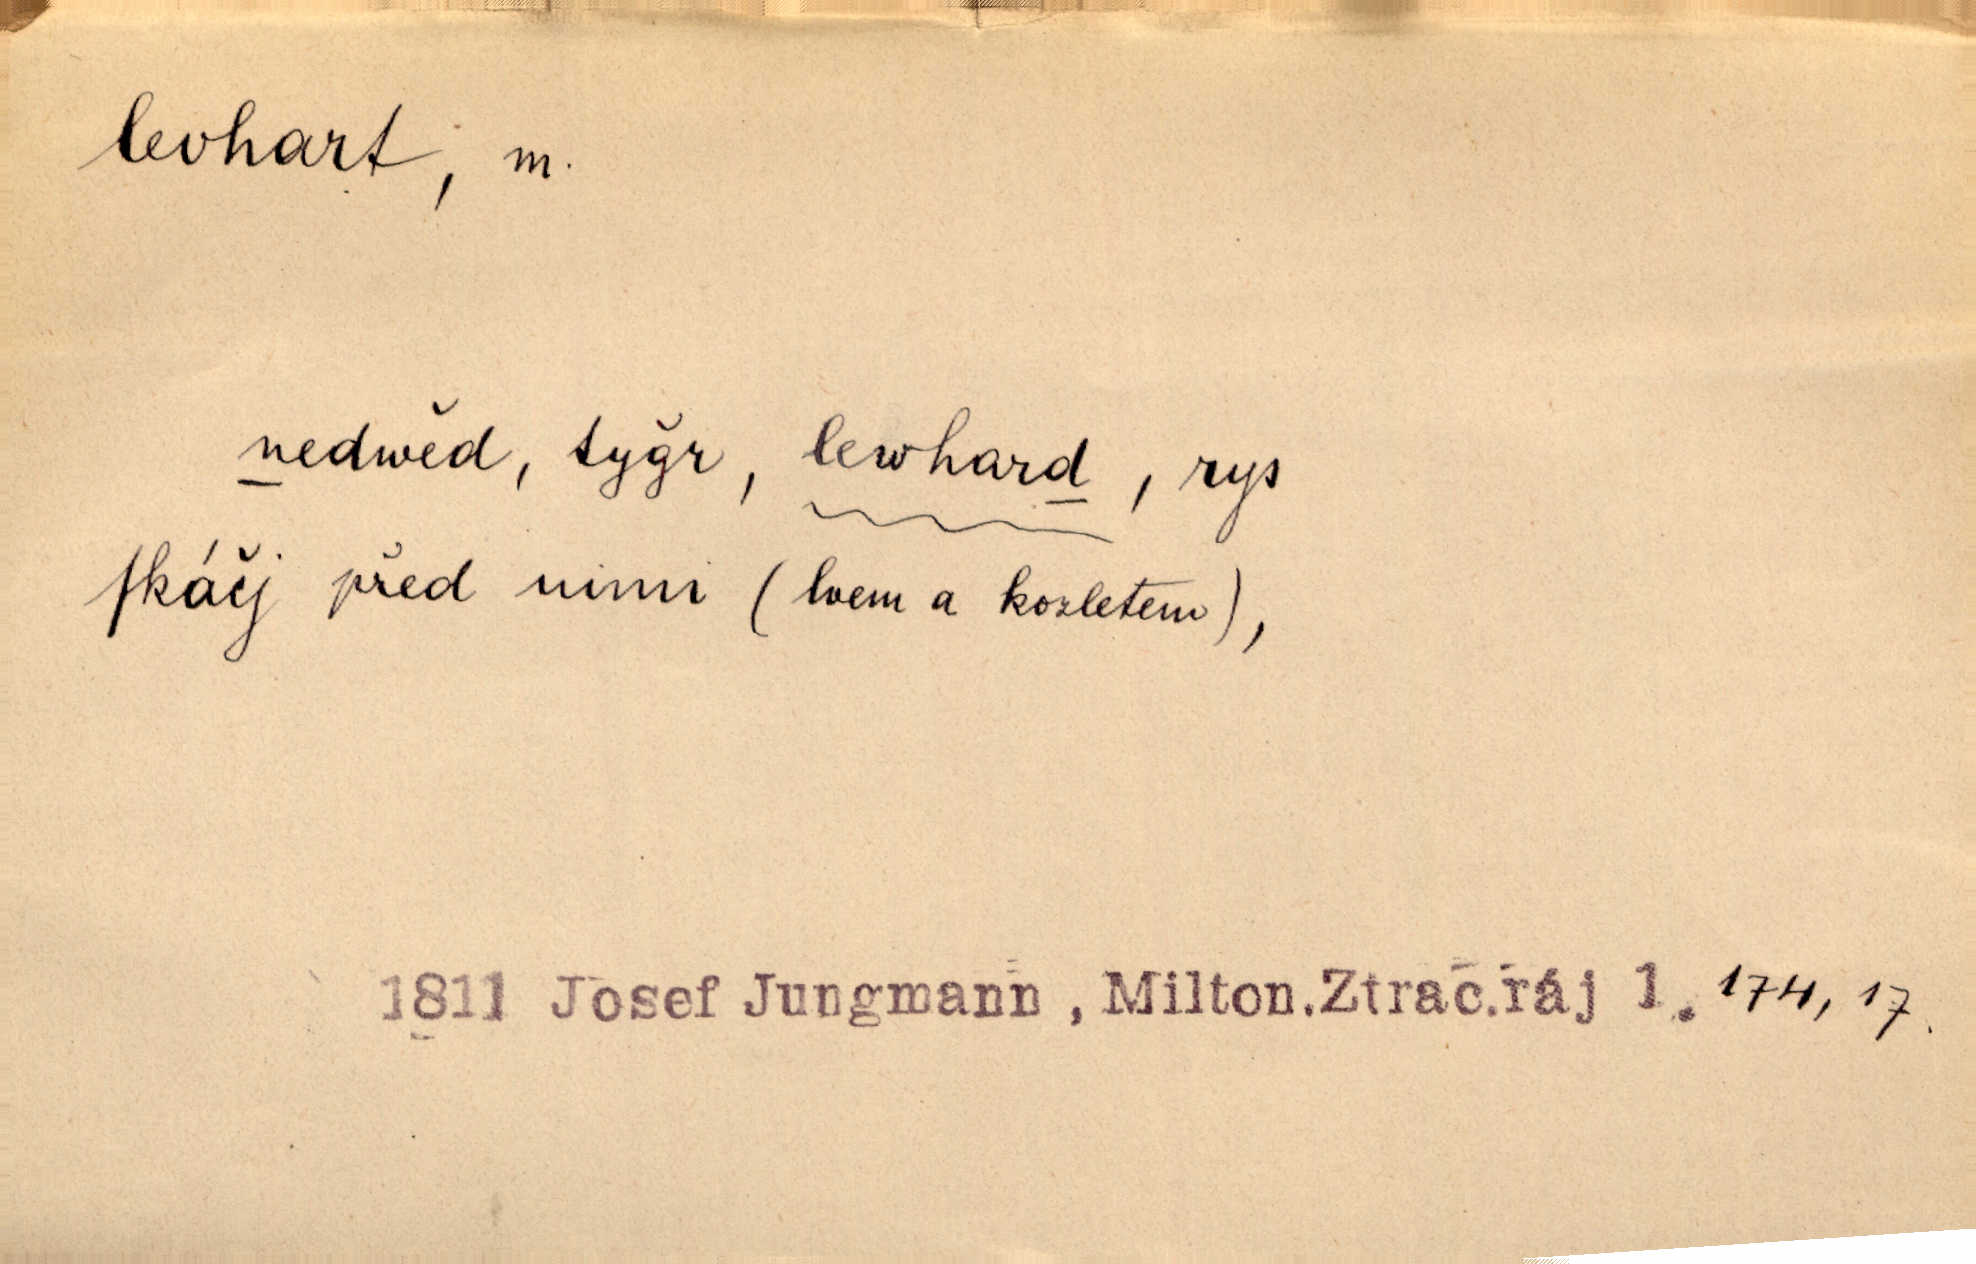 levhart, m.
nedwěd, tyğr, lewhard, rys
ſkáčj před nimi (lvem a kozletem),
1811 Josef Jungmann, Milton.Ztrac.ráj 1. 174, 17.